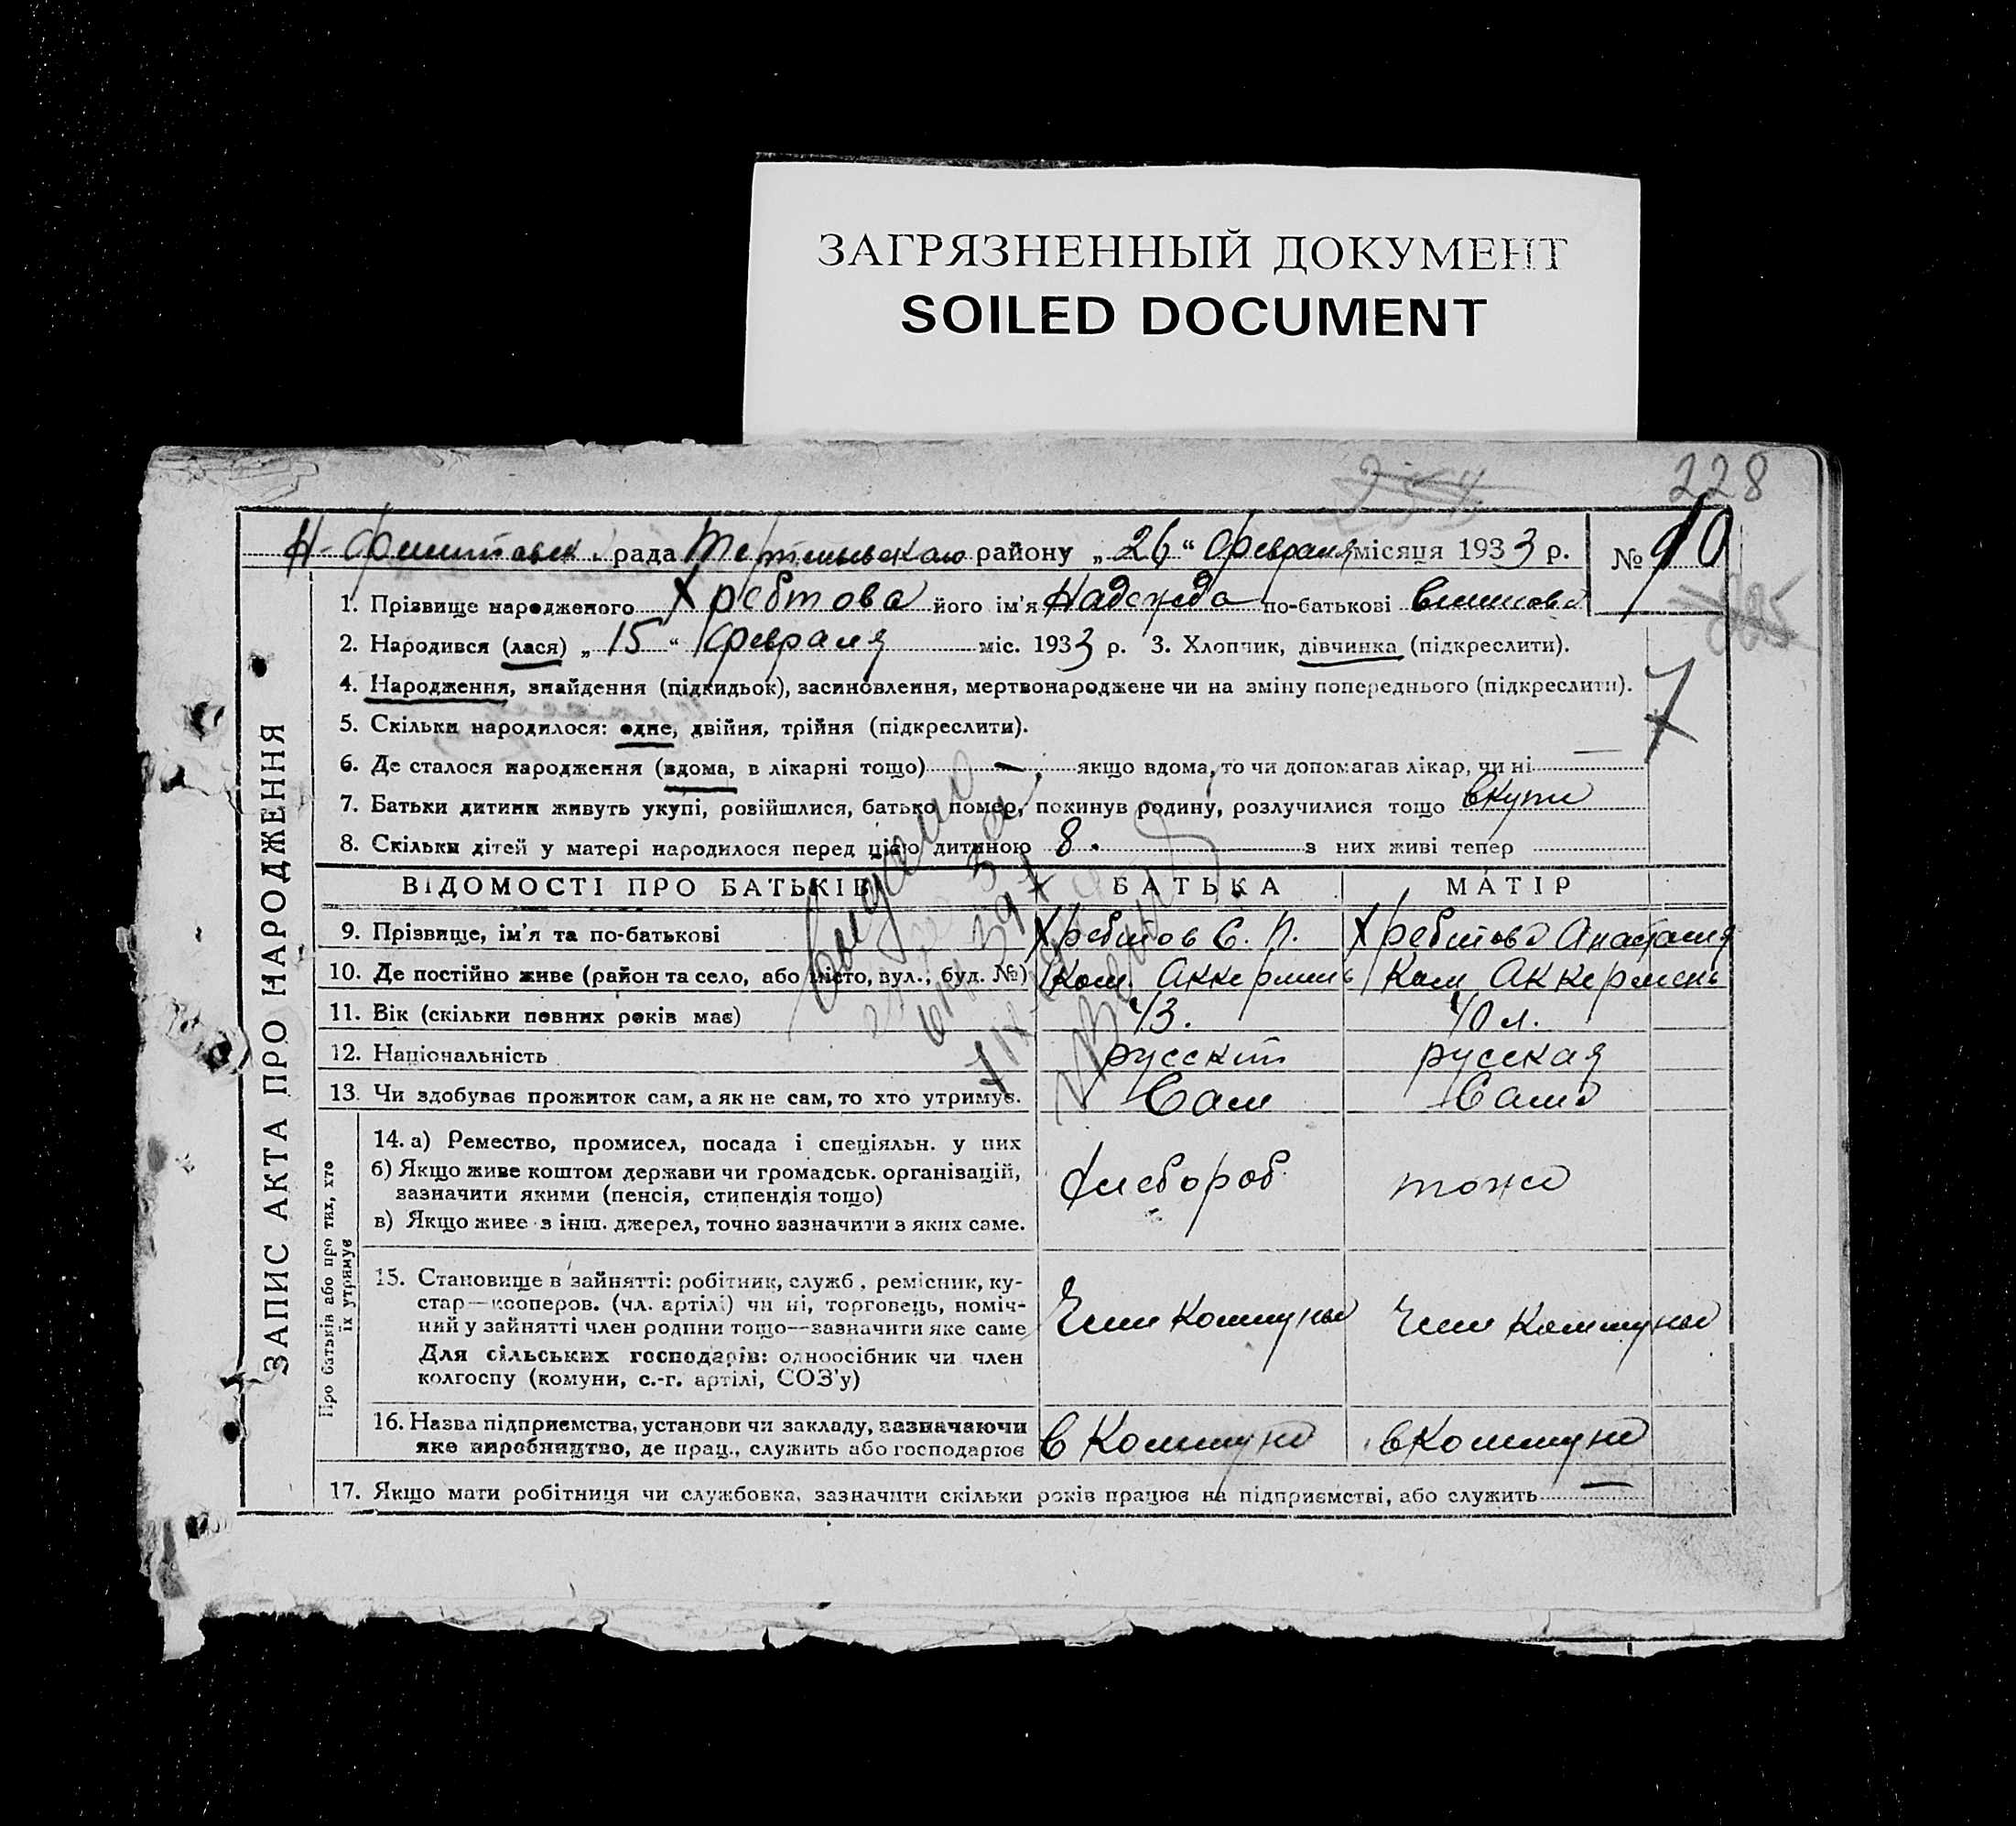 ЗАГРЯЗНЕННЫЙ ДОКУМЕНТ
SOILED DOCUMENT
228
рада району „26“ февраля місяця 1933 р. № 90
1. Прізвище народженого Хребтова його ім'я Надежда по-батькові
2. Народився (лася) „15“ февраля міс. 1933 р. 3. Хлопчик, дівчинка (підкреслити).
4. Народження, знайдення (підкидьок), засиновлення, мертвонароджене чи на зміну попереднього (підкреслити).
5. Скільки народилося: одне, двійня, трійня (підкреслити).
6. Де сталося народження (вдома, в лікарні тощо) — якщо вдома, то чи допомагав лікар, чи ні —
7. Батьки дитини живуть укупі, розійшлися, батько помер, покинув родину, розлучилися тощо вкупе
8. Скільки дітей у матері народилося перед цією дитиною 8. з них живі тепер
ЗАПИС АКТА ПРО НАРОДЖЕННЯ
ВІДОМОСТІ ПРО БАТЬКІВ БАТЬКА МАТІР
9. Прізвище, ім'я та по-батькові Хребтов С. П. Хребтова Анастасия
10. Де постійно живе (район та село, або місто, вул., буд. №) Ком. Аккермень Ком Аккермень
11. Вік (скільки повних років має) 43. 40 л.
12. Національність русский русская
13. Чи здобуває прожиток сам, а як не сам, то хто утримує. Сам Сама
Про батьків або про тих, хто
їх утримує
14. а) Ремество, промисел, посада і спеціяльн. у них
б) Якщо живе коштом держави чи громадськ. організацій,
зазначити якими (пенсія, стипендія тощо) хлебороб тоже
в) Якщо живе з інш. джерел, точно зазначити з яких саме.
15. Становище в зайнятті: робітник, служб., ремісник, ку-
стар—кооперов. (чл. артілі) чи ні, торговець, поміч-
ний у зайнятті член родини тощо—зазначити яке саме Член Коммуны Член Коммуны
Для сільських господарів: одноосібник чи член
колгоспу (комуни, с.-г. артілі, СОЗ'у)
16. Назва підприємства, установи чи закладу, зазначаючи
яке виробництво, де прац., служить або господарює в Коммуне в Коммуне
17. Якщо мати робітниця чи службовка, зазначити скільки років працює на підприємстві, або служить —